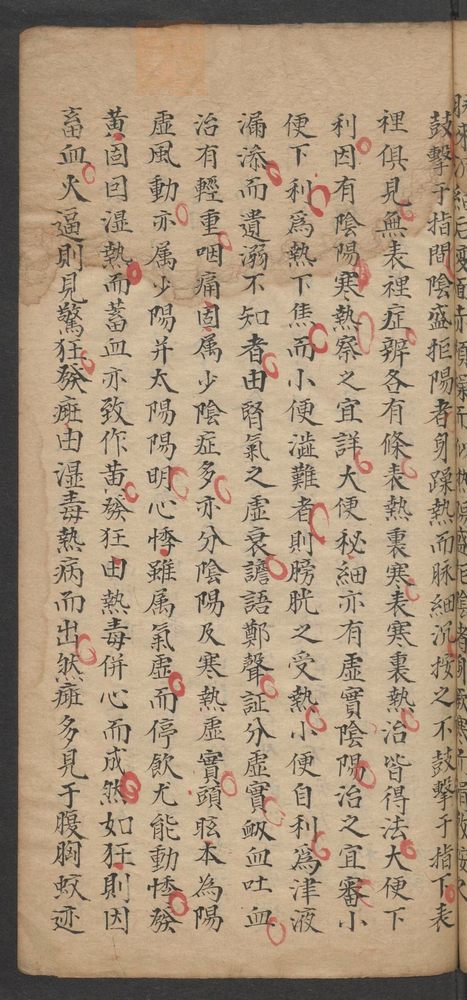 鼓擊于指間陰盛拒陽者身躁熱而脉細沉按之不鼓擊于指下表
裡俱見無表裡症辨各有條表熱裏寒表寒裏熱治皆得法大便下
利因有陰陽寒熱察之宜詳大便秘細亦有虛實陰陽治之宜審小
便下利爲熱下焦而小便澁難者則膀胱之受熱小便自利爲津液
漏滲而遺溺不知者由腎氣之虛衰譫語鄭聲証分虛實衂血吐血
治有輕重咽痛固属少陰症多亦分陰陽及寒熱虛實頭眩本為陽
虛風動亦属少陽并太陽陽明心悸雖属氣虛而停飲尤能動悸發
黄固回湿熱而蓄血亦致作黄發狂由熱毒併心而成然如狂則因
畜血火逼則見驚狂發疵由湿毒熱病而出然疵多見于腹胸蚊迹